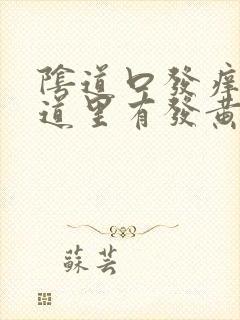 陰道口發痒
道里有發黃
蘇芸